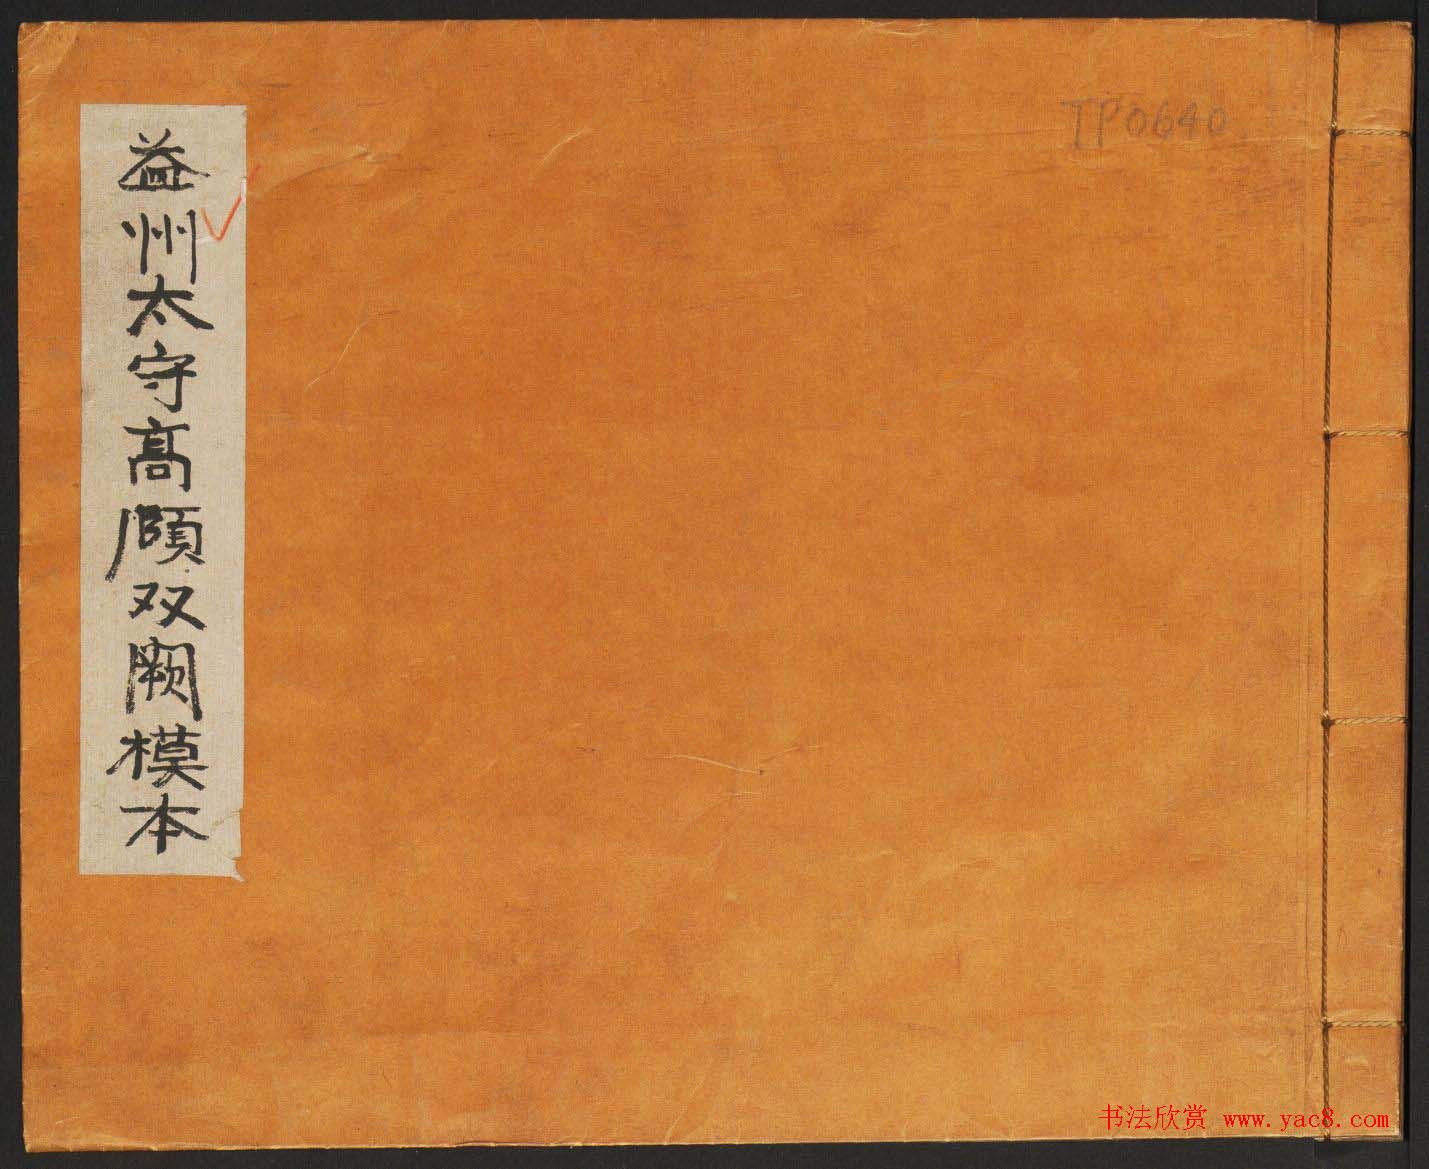 益州太守高頤双阙模本
TP0640
书法欣赏 www.yac8.com